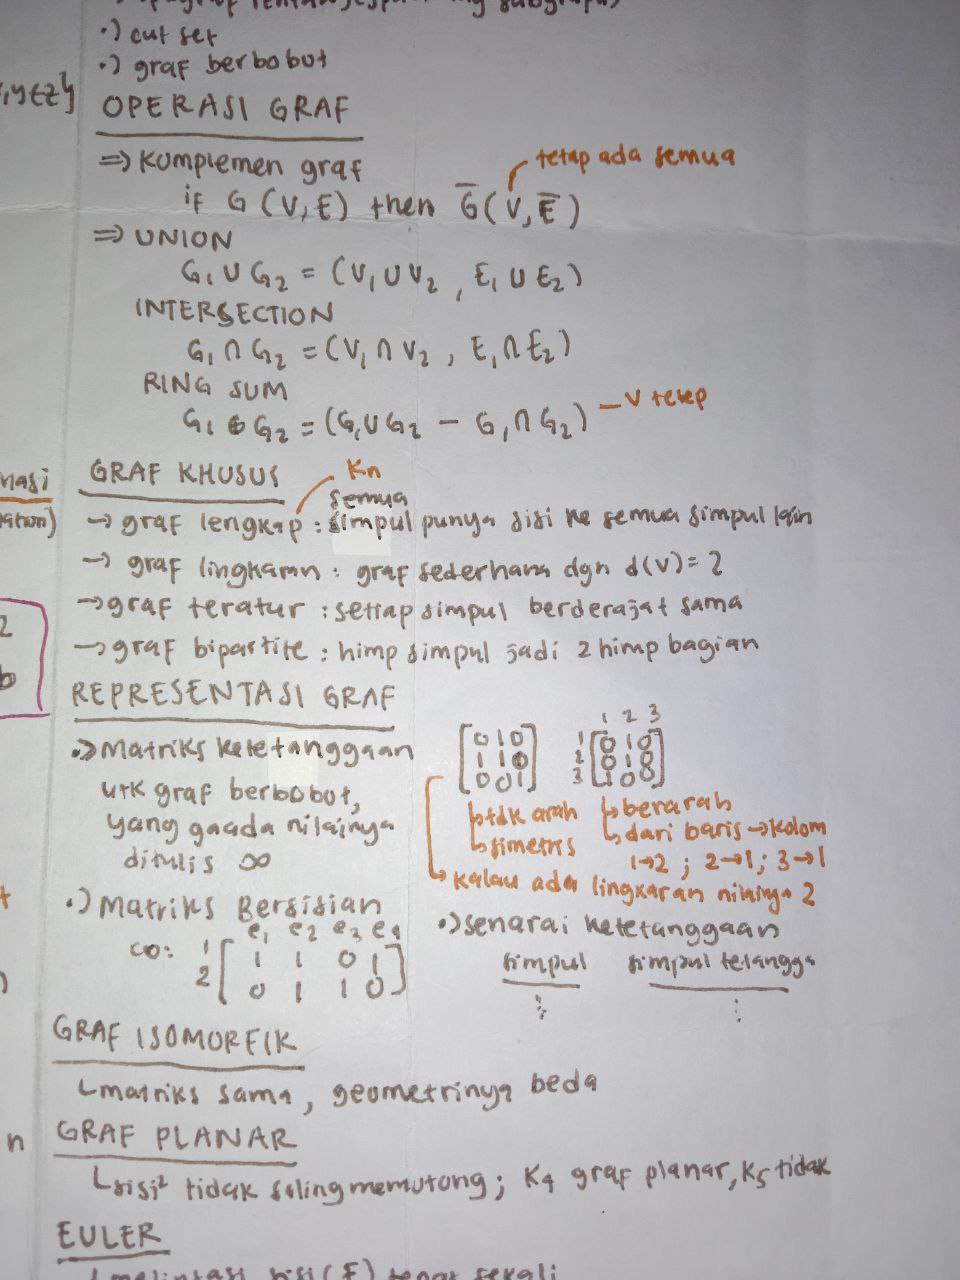 ·) cut set
·) graf berbobot
OPERASI GRAF
⇒ Komplemen graf
tetap ada semua
if G (V, E) then G̅(V, E̅)
⇒ UNION
G₁ ∪ G₂ = (V₁ ∪ V₂ , E₁ ∪ E₂)
INTERSECTION
G₁ ∩ G₂ = (V₁ ∩ V₂ , E₁ ∩ E₂)
RING SUM
G₁ ⊕ G₂ = (G₁ ∪ G₂ − G₁ ∩ G₂) — V tetap
GRAF KHUSUS
Kn
semua
→ graf lengkap : simpul punya sisi ke semua simpul lain
→ graf lingkaran : graf sederhana dgn d(v) = 2
→ graf teratur : setiap simpul berderajat sama
→ graf bipartite : himp simpul jadi 2 himp bagian
REPRESENTASI GRAF
·) Matriks ketetanggaan
utk graf berbobot,
yang gaada nilainya
ditulis ∞
0 1 0
1 1 0
0 0 1
1 2 3
1 0 1 0
2 0 1 0
3 1 0 0
↳ tdk arah
↳ simetris
↳ berarah
↳ dari baris → kolom
1→2 ; 2→1 ; 3→1
↳ kalau ada lingkaran nilainya 2
·) Matriks Bersisian
e₁ e₂ e₃ e₄
co: 1 1 1 0 1
2 0 1 1 0
·) senarai ketetanggaan
simpul simpul tetangga
⋮ ⋮
GRAF ISOMORFIK
↳ matriks sama, geometrinya beda
GRAF PLANAR
↳ sisi² tidak saling memotong; K₄ graf planar, K₅ tidak
EULER
↳ melintasi sisi (E) tepat sekali